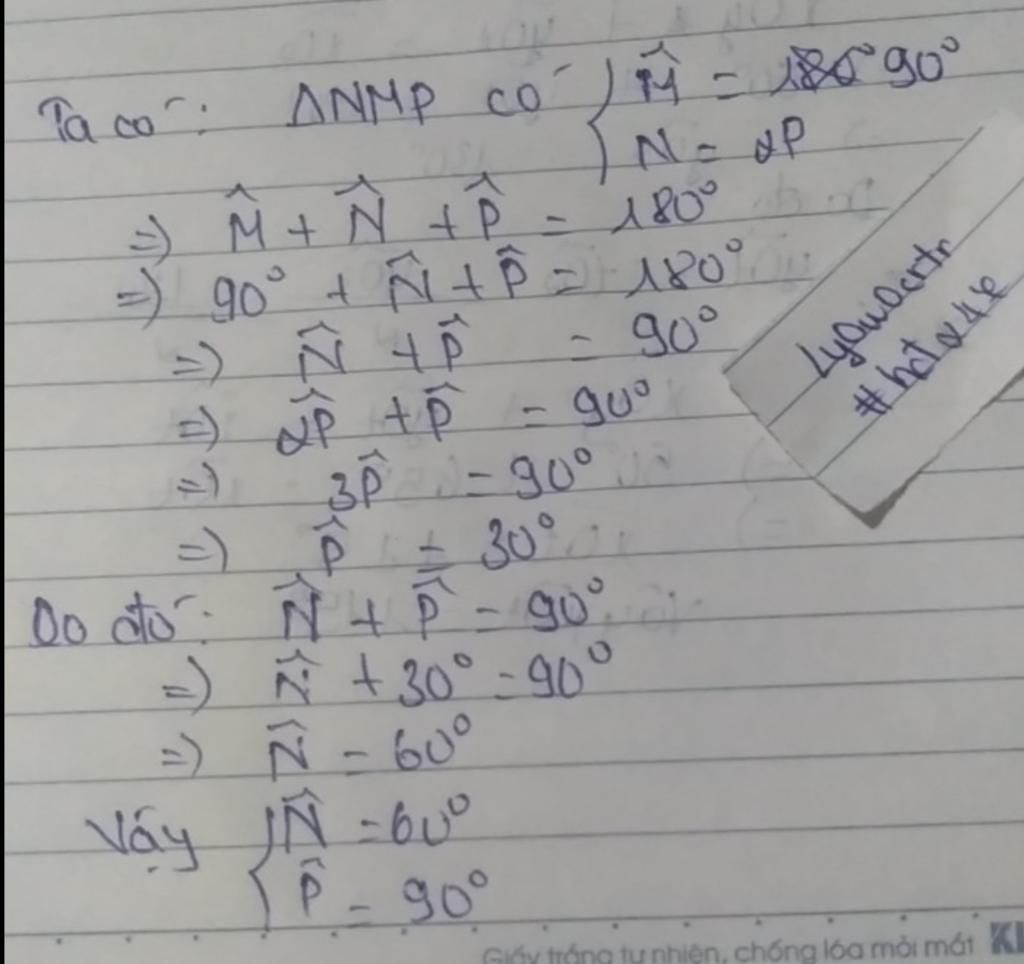 Ta có: ΔNMP có { M̂ = 90°
N = 2P
=) M̂ + N̂ + P̂ = 180°
=) 90° + N̂ + P̂ = 180°
=) N̂ + P̂ = 90°
=) 2P̂ + P̂ = 90°
=) 3P̂ = 90°
=) P̂ = 30°
Do đó: N̂ + P̂ = 90°
=) N̂ + 30° = 90°
=) N̂ = 60°
Vậy { N̂ = 60°
P̂ = 90°
Giấy trắng tự nhiên, chống lóa mỏi mắt